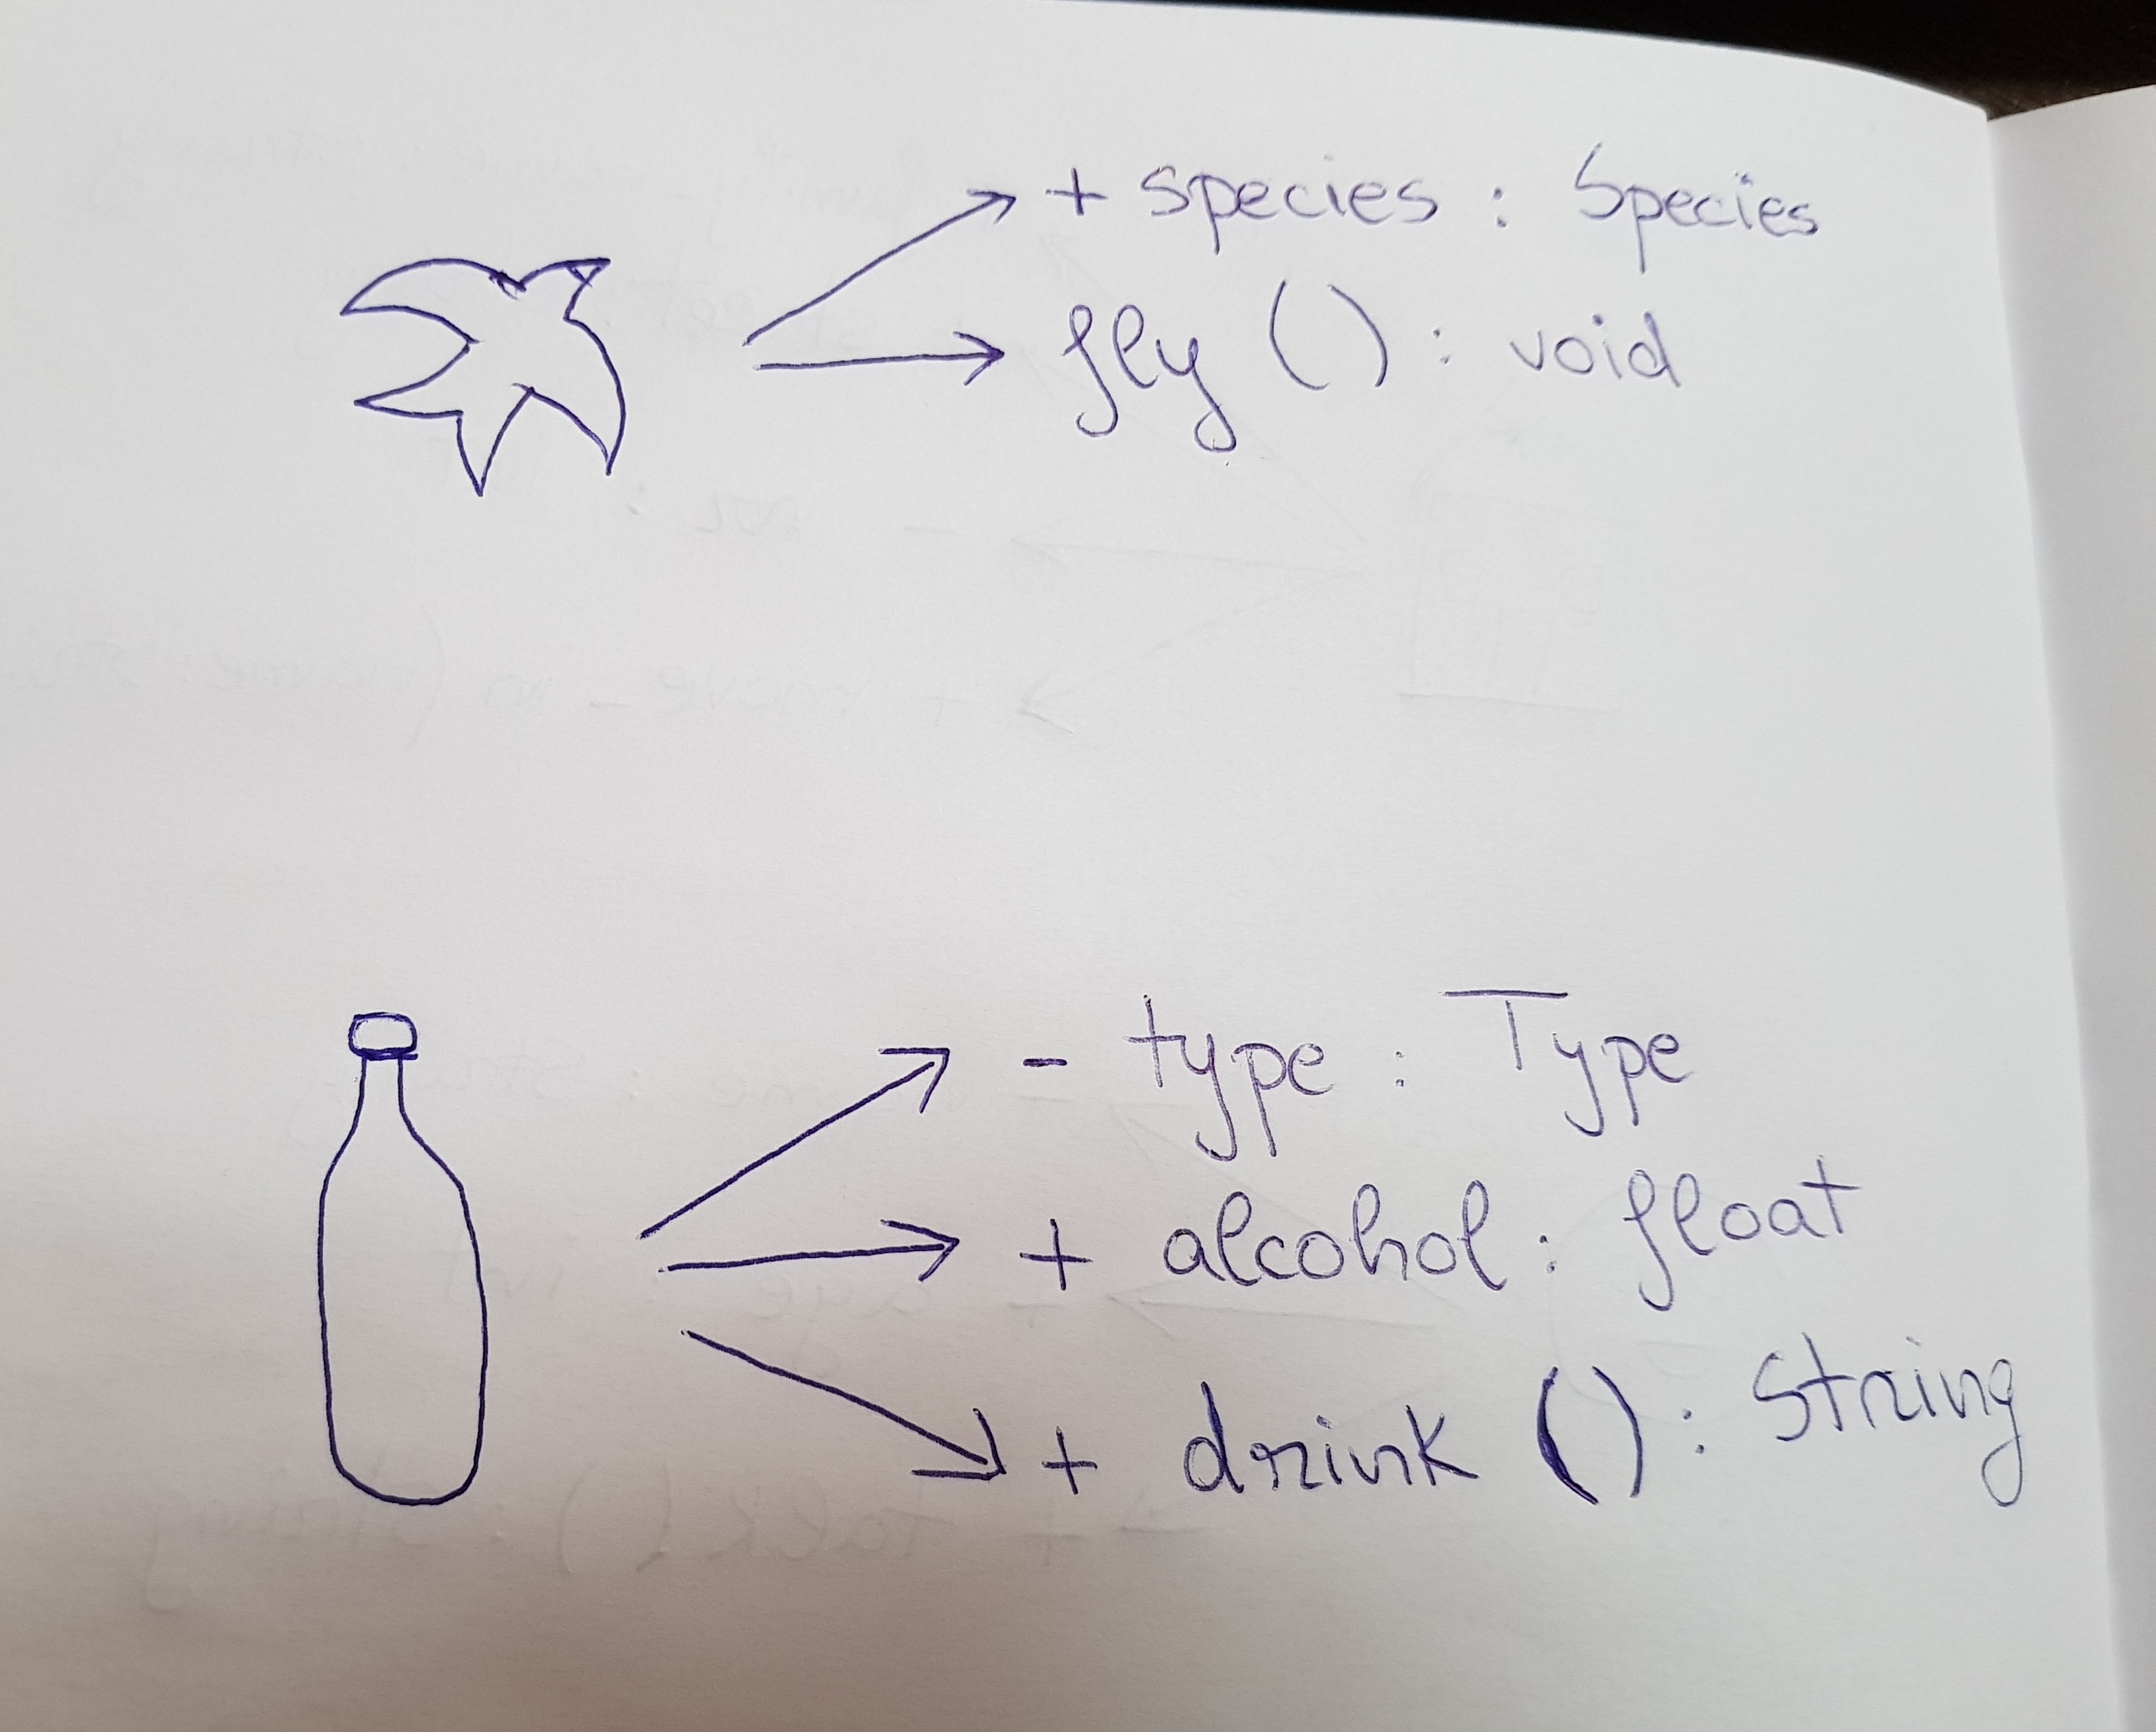 + species : Species
fly () : void
- type : Type
+ alcohol : float
+ drink () : String